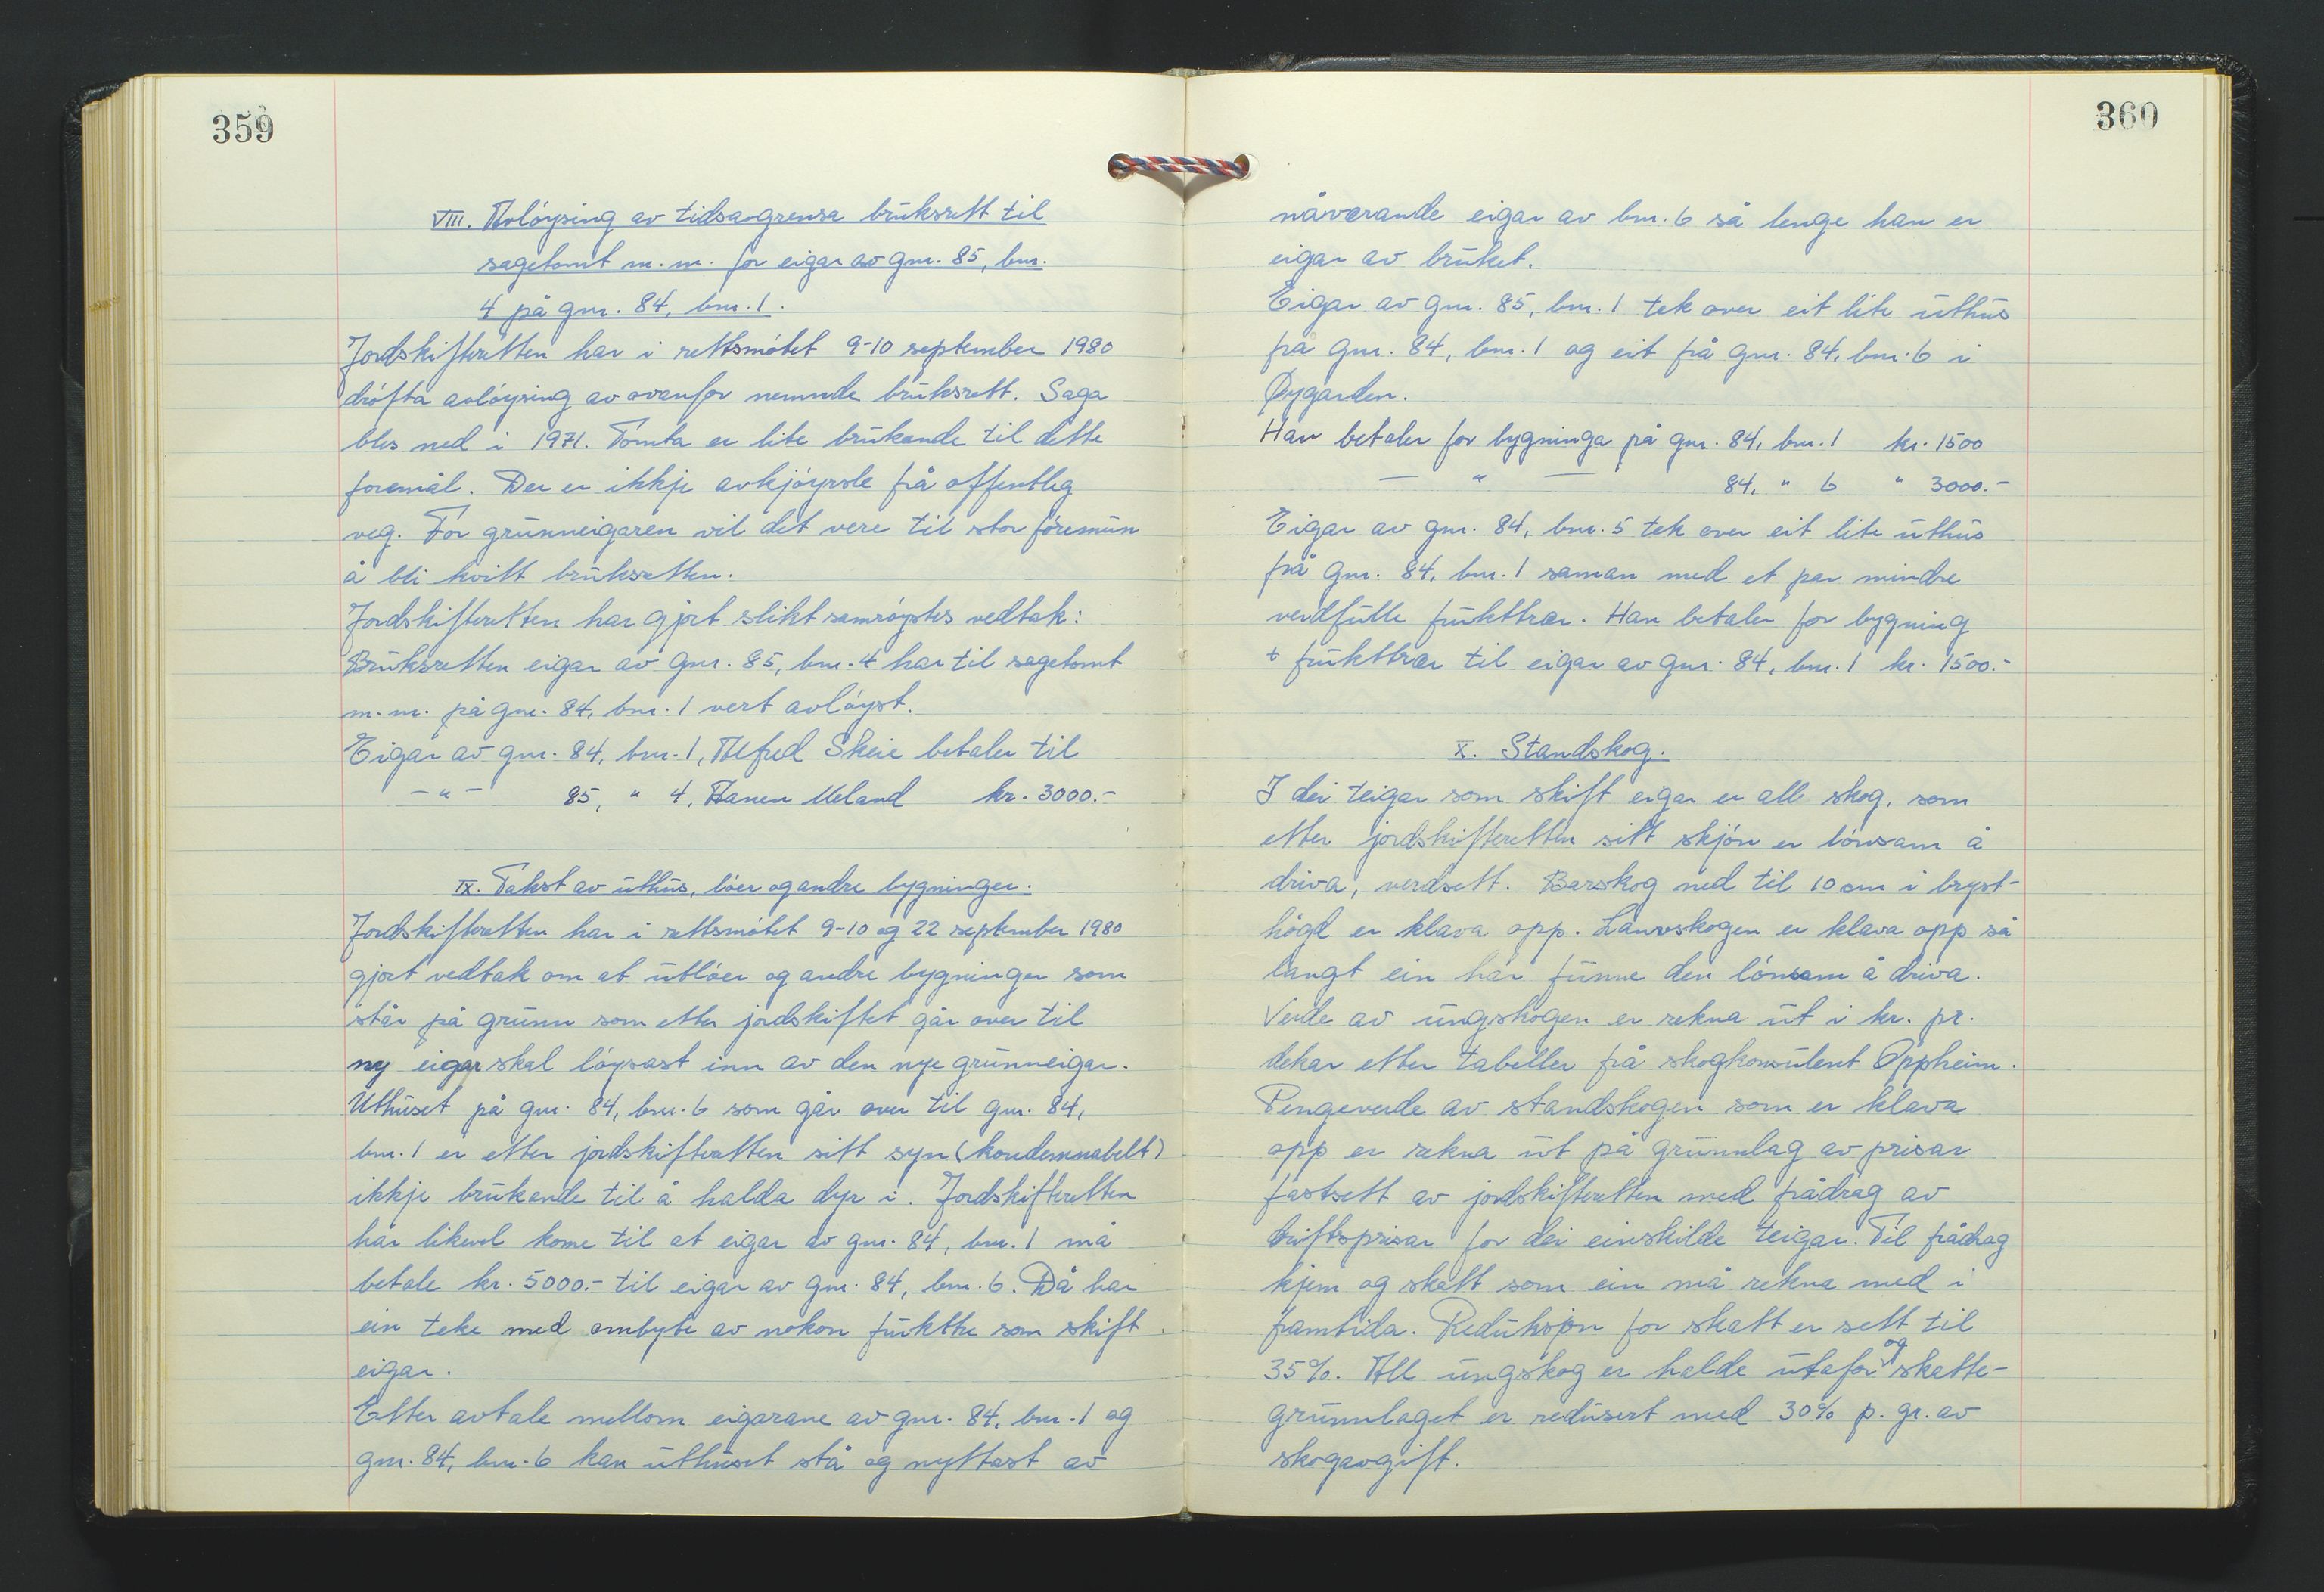 359
VIII. Avløysing av tidsavgrensa bruksrett til
sagetomt m.m. for eigar av gnr. 85, bnr.
4 på gnr. 84, bnr. 1.
Jordskifteretten har i rettsmøtet 9-10 september 1980
drøfta avløysing av ovanfor nemnde bruksrett. Saga
bles ned i 1971. Tomta er lite brukande til dette
foremål. Der er ikkje avkjøyrsle frå offentleg
veg. For grunneigaren vil det vere til stor føremun
å bli kvitt bruksretten.
Jordskifteretten har gjort slikt samrøystes vedtak:
Bruksretten eigar av gnr. 85, bnr. 4 har til sagetomt
m.m. på gnr. 84, bnr. 1 vert avløyst.
Eigar av gnr. 84, bnr. 1, Alfred Skeie betaler til
- " - 85, " 4, Hanen Meland kr. 3000.-
IX. Takst av uthus, løer og andre bygninger.
Jordskifteretten har i rettsmøtet 9-10 og 22 september 1980
gjort vedtak om at utløer og andre bygninger som
står på grunn som etter jordskiftet går over til
ny eigar skal løysast inn av den nye grunneigar.
Uthuset på gnr. 84, bnr. 6 som går over til gnr. 84,
bnr. 1 er etter jordskifteretten sitt syn (kondemnabelt)
ikkje brukande til å halda dyr i. Jordskifteretten
har likevel kome til at eigar av gnr. 84, bnr. 1 må
betale kr. 5000.- til eigar av gnr. 84, bnr. 6. Då har
ein teke med ombyte av nokon frukttre som skift
eigar.
Etter avtale mellom eigarane av gnr. 84, bnr. 1 og
gnr. 84, bnr. 6 kan uthuset stå og nyttast av
360
nåværande eigar av bnr. 6 så lenge han er
eigar av bruket.
Eigar av gnr. 85, bnr. 1 tek over eit lite uthus
frå gnr. 84, bnr. 1 og eit frå gnr. 84, bnr. 6 i
Øygarden.
Han betaler for bygninga på gnr. 84, bnr. 1 kr. 1500
— " — 84, " 6 " 3000.-
Eigar av gnr. 84, bnr. 5 tek over eit lite uthus
frå gnr. 84, bnr. 1 saman med et par mindre
verdfulle frukttrær. Han betaler for bygning
+ frukttrær til eigar av gnr. 84, bnr. 1 kr. 1500.-
X. Standskog.
I dei teigar som skift eigar er alle skog, som
etter jordskifteretten sitt skjøn er lønsam å
driva, verdsett. Barskog ned til 10 cm i bryst-
høgd er klava opp. Lauvskogen er klava opp så
langt ein har funne den lønsam å driva.
Verde av ungskogen er rekna ut i kr. pr.
dekar etter tabeller frå skogkonsulent Oppheim.
Pengeverde av standskogen som er klava
opp er rekna ut på grunnlag av prisar
fastsett av jordskifteretten med frådrag av
driftsprisar for dei einskilde teigar. Til frådrag
kjem og skatt som ein må rekna med i
framtida. Reduksjon for skatt er sett til
35%. All ungskog er halde utafor og skatte-
grunnlaget er redusert med 30% p. gr. av
skogavgift.